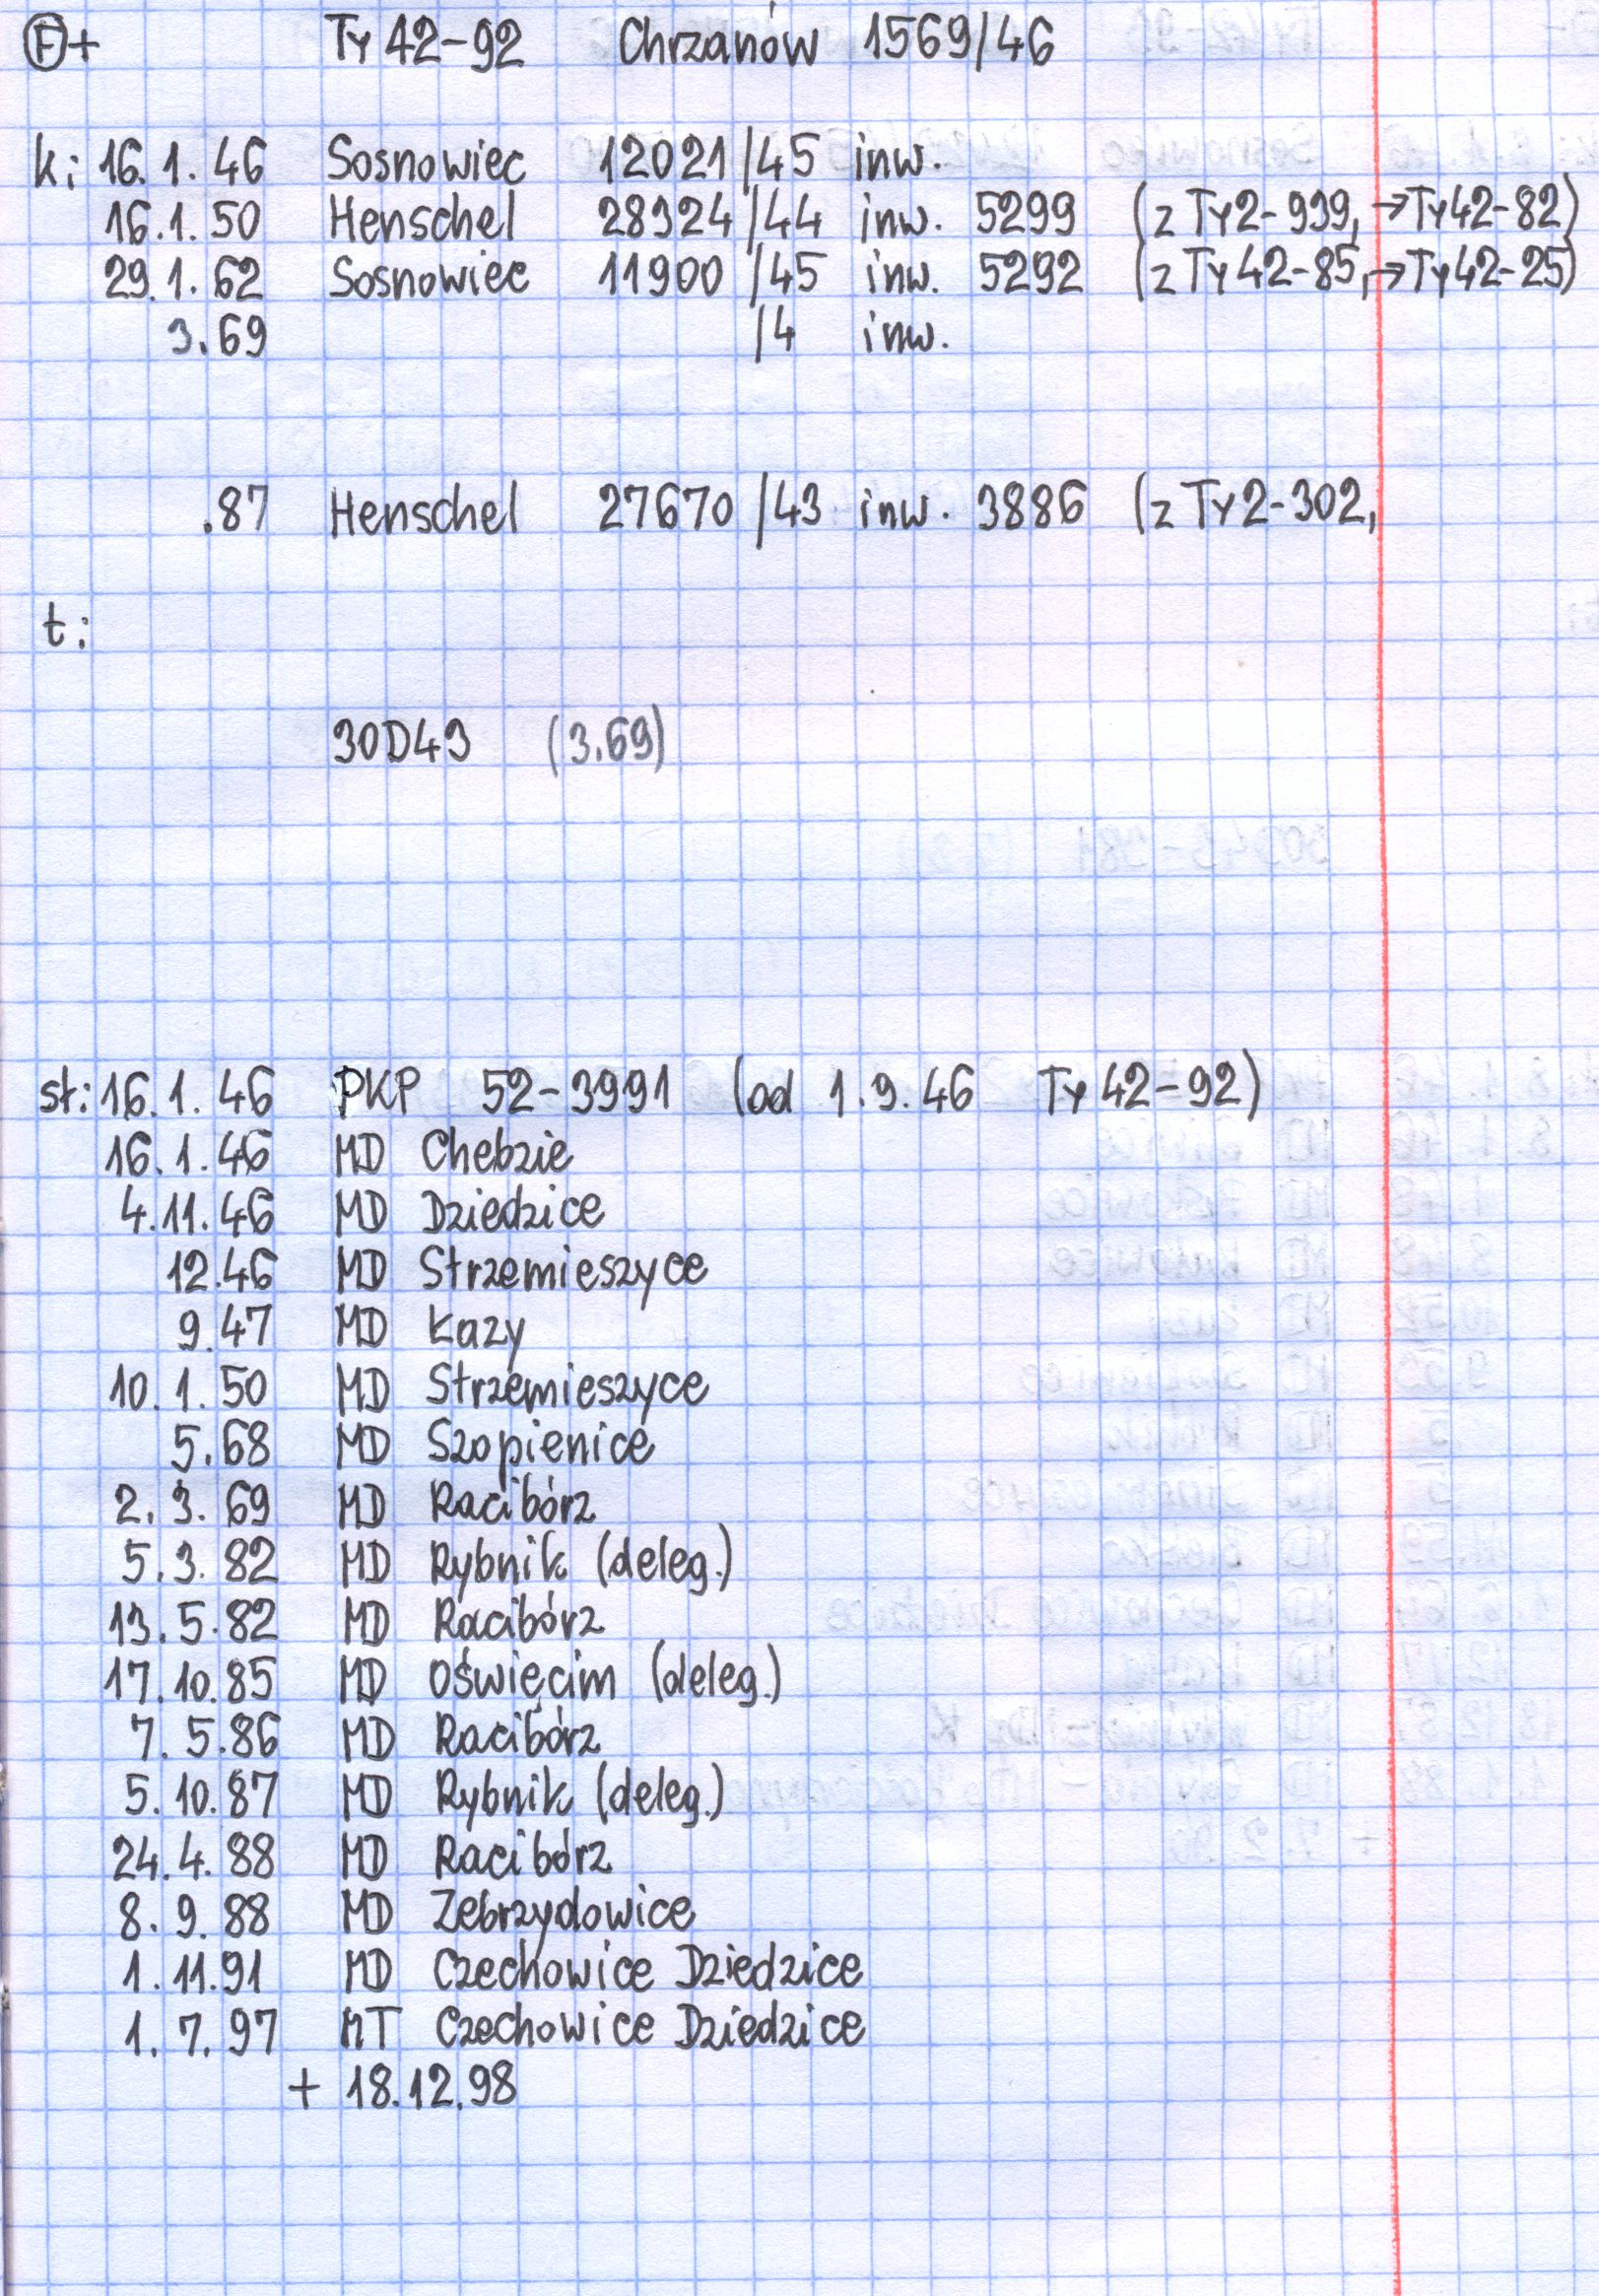 Ⓕ+ Ty 42-92 Chrzanów 1569/46
k: 16.1.46 Sosnowiec 12021/45 inw.
16.1.50 Henschel 28324/44 inw. 5299 (z Ty2-939, →Ty42-82)
29.1.62 Sosnowiec 11900/45 inw. 5292 (z Ty42-85, →Ty42-25)
3.69 /4 inw.
.87 Henschel 27670/43 inw. 3886 (z Ty2-302,
t:
30D43 (3.69)
st: 16.1.46 PKP 52-3991 (od 1.9.46 Ty 42-92)
16.1.46 MD Chebzie
4.11.46 MD Dziedzice
12.46 MD Strzemieszyce
9.47 MD Łazy
10.1.50 MD Strzemieszyce
5.68 MD Szopienice
2.3.69 MD Racibórz
5.3.82 MD Rybnik (deleg.)
13.5.82 MD Racibórz
17.10.85 MD Oświęcim (deleg.)
7.5.86 MD Racibórz
5.10.87 MD Rybnik (deleg.)
24.4.88 MD Racibórz
8.9.88 MD Zebrzydowice
1.11.91 MD Czechowice Dziedzice
1.7.97 MT Czechowice Dziedzice
+ 18.12.98